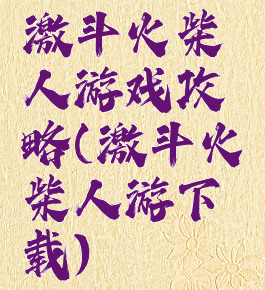 激斗火柴
人游戏攻
略(激斗火
柴人游下
载)